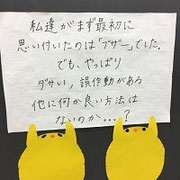 私達がまず最初に
思い付いたのは「ブザー」でした。
でも、やっぱり
ダサい，誤作動がある
他に何か良い方法は
ないのか…?